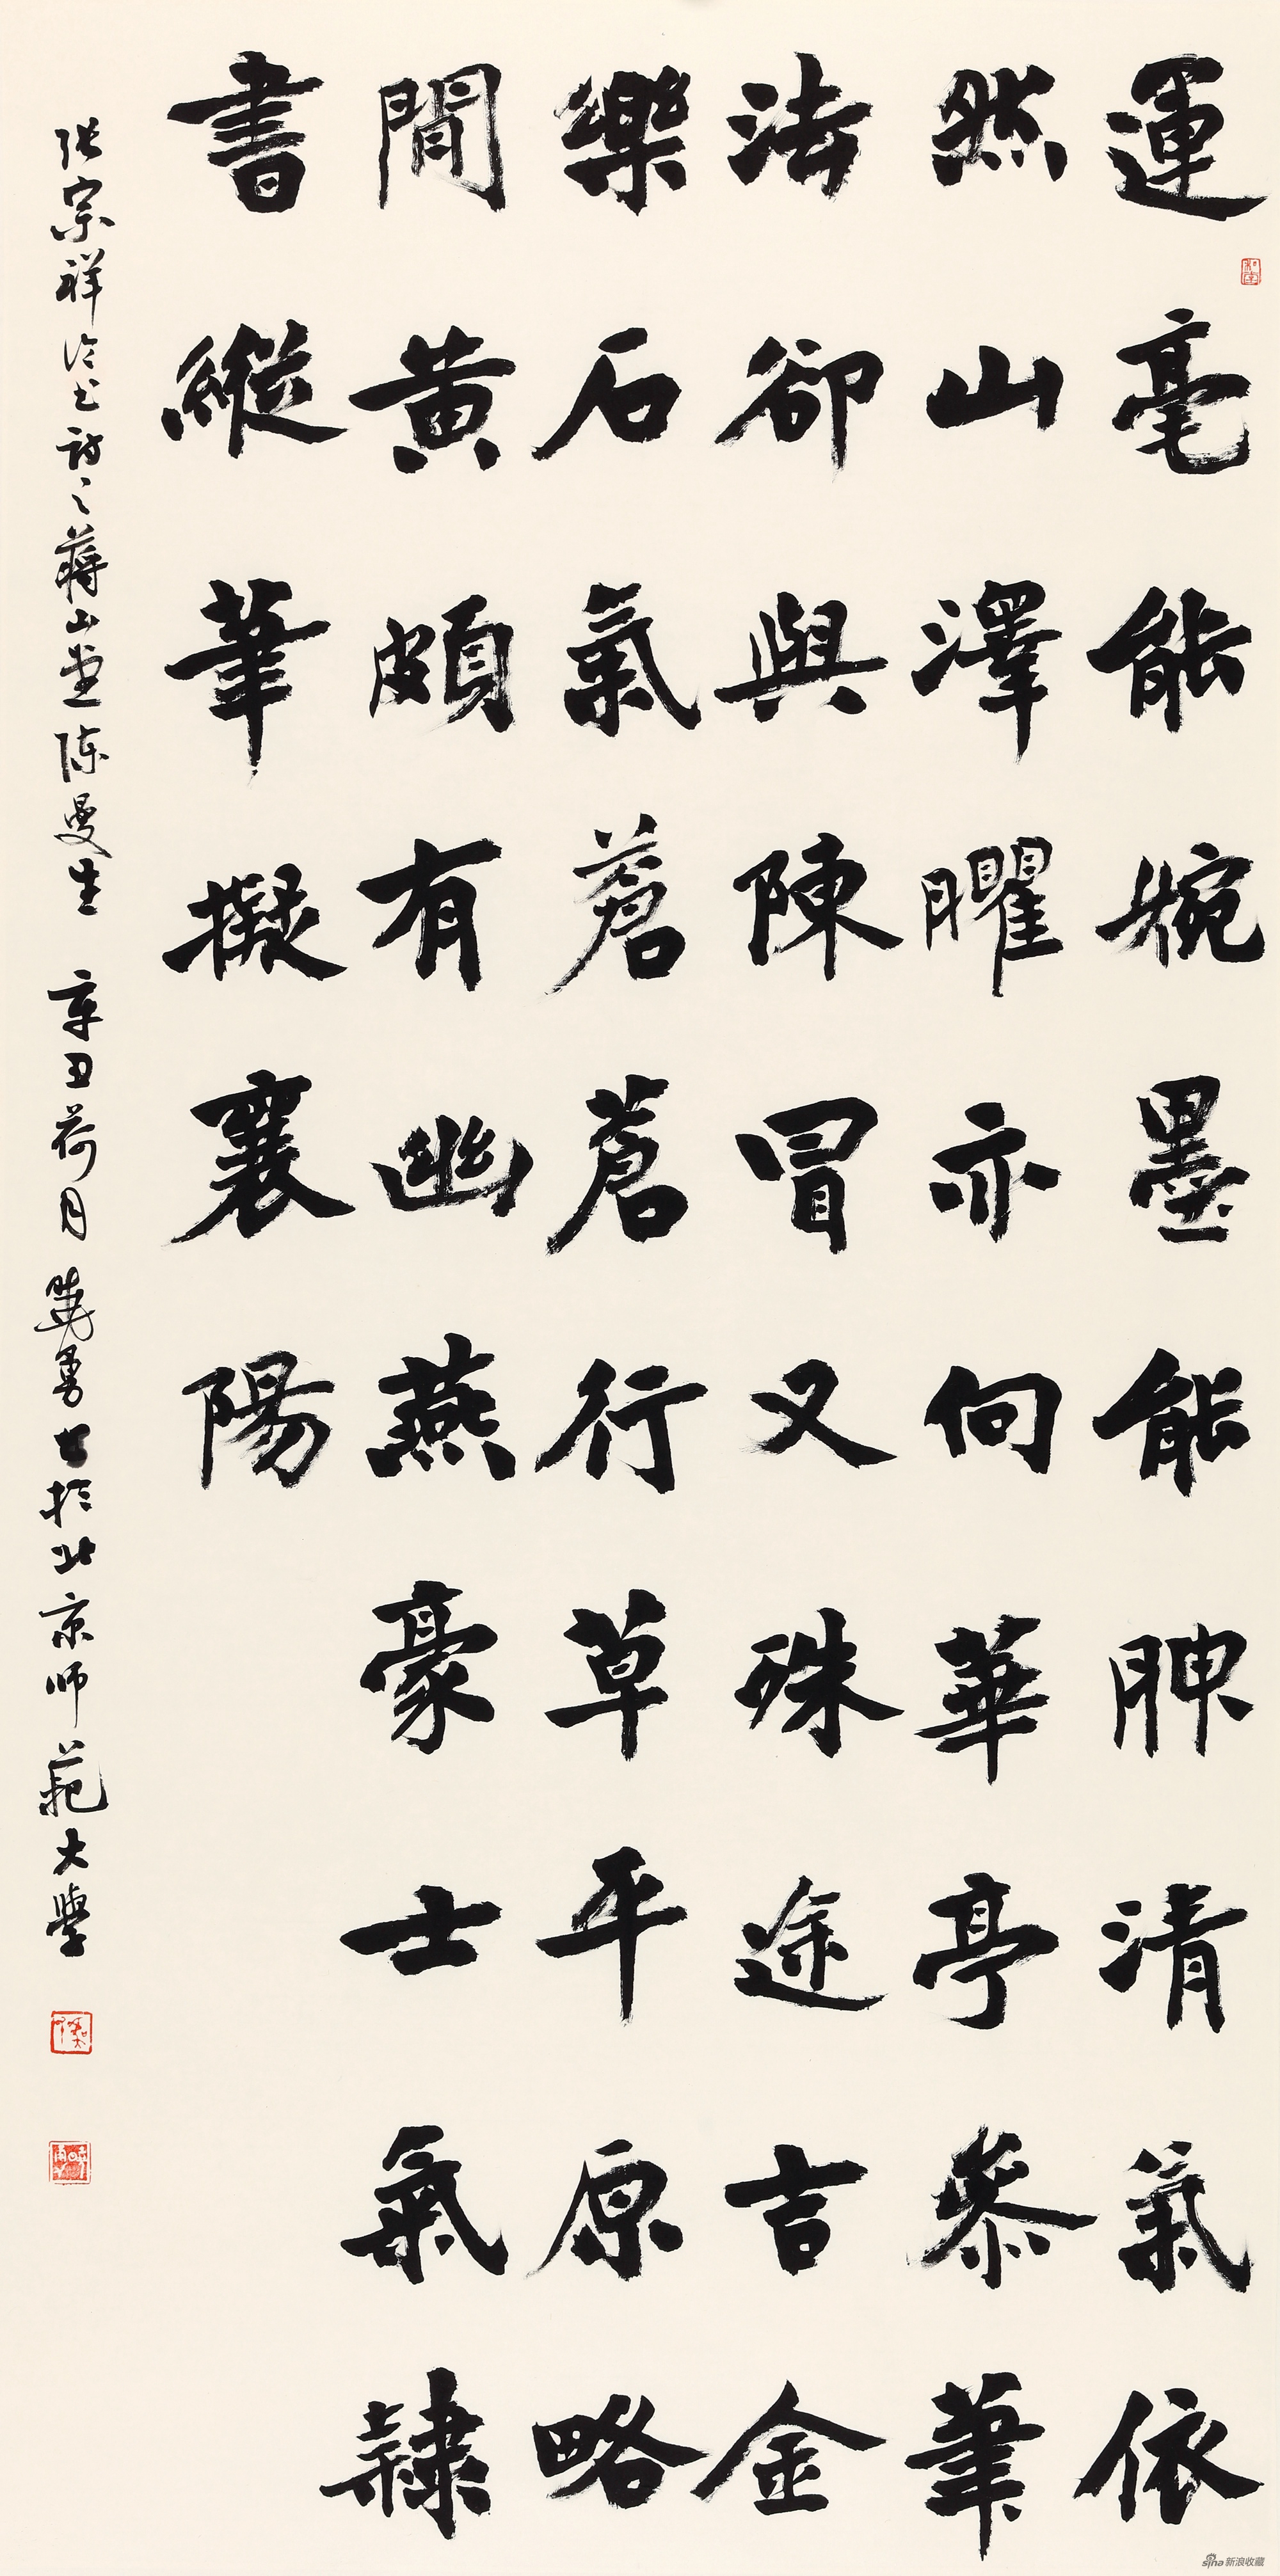 運毫能婉墨能腴清氣依
然山澤臞亦向華亭叅筆
法卻與陳冒又殊途吉金
樂石氣蒼蒼行草平原略
間黄頗有幽燕豪士氣隸
書縱筆擬襄陽
張宗祥論書詩之蔣山堂陳曼生 辛丑荷月 曉勇書於北京师範大學
sina新浪收藏